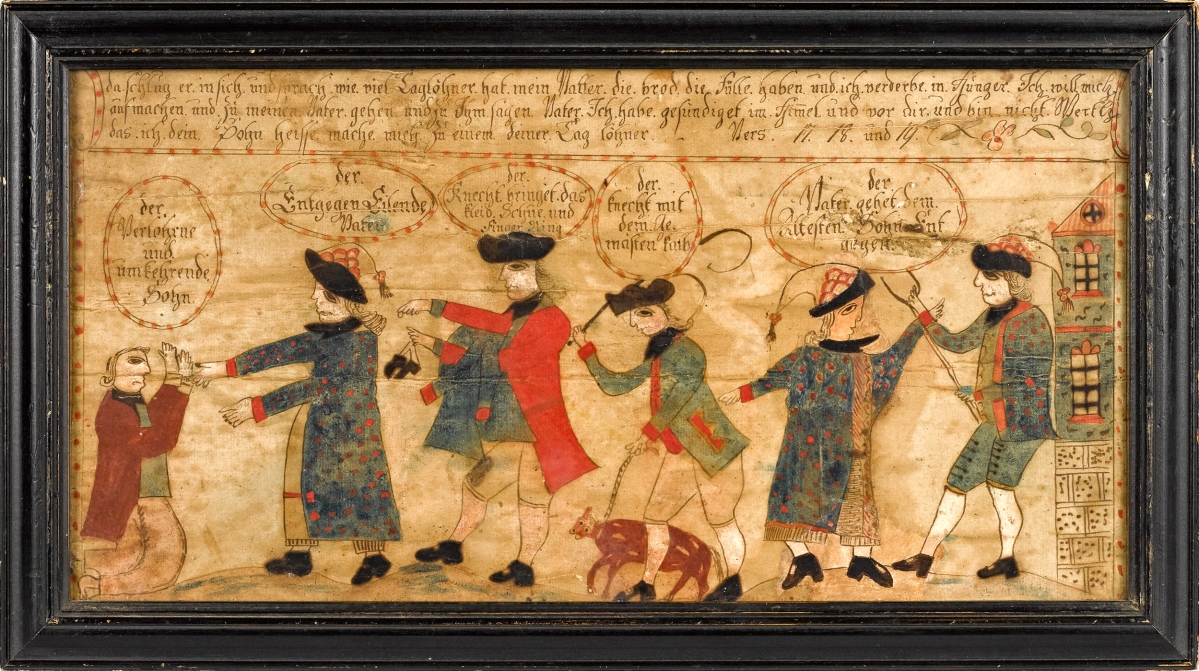 da schlug er in sich und sprach wie viel Taglöhner hat mein Vatter die brod die Fülle haben und ich verderbe in Hunger Ich will mich
aufmachen und zu meinen Vater gehen und zu Ihm sagen Vater Ich habe gesündiget im Himel und vor dir und bin nicht Werth
das ich dein Sohn heisse mache mich zu einem deiner Tag löhner. Vers. 17. 18. und 19
der.
Verlohrne
und
umkehrende
Sohn.
der.
Entgegen Eilende
Vater
der.
Knecht bringet das
Kleid, Schue und
Finger Ring
der.
knecht mit
dem Ge
mästen kalb
der
Vater gehet dem
Ältesten Sohn Ent
gegen